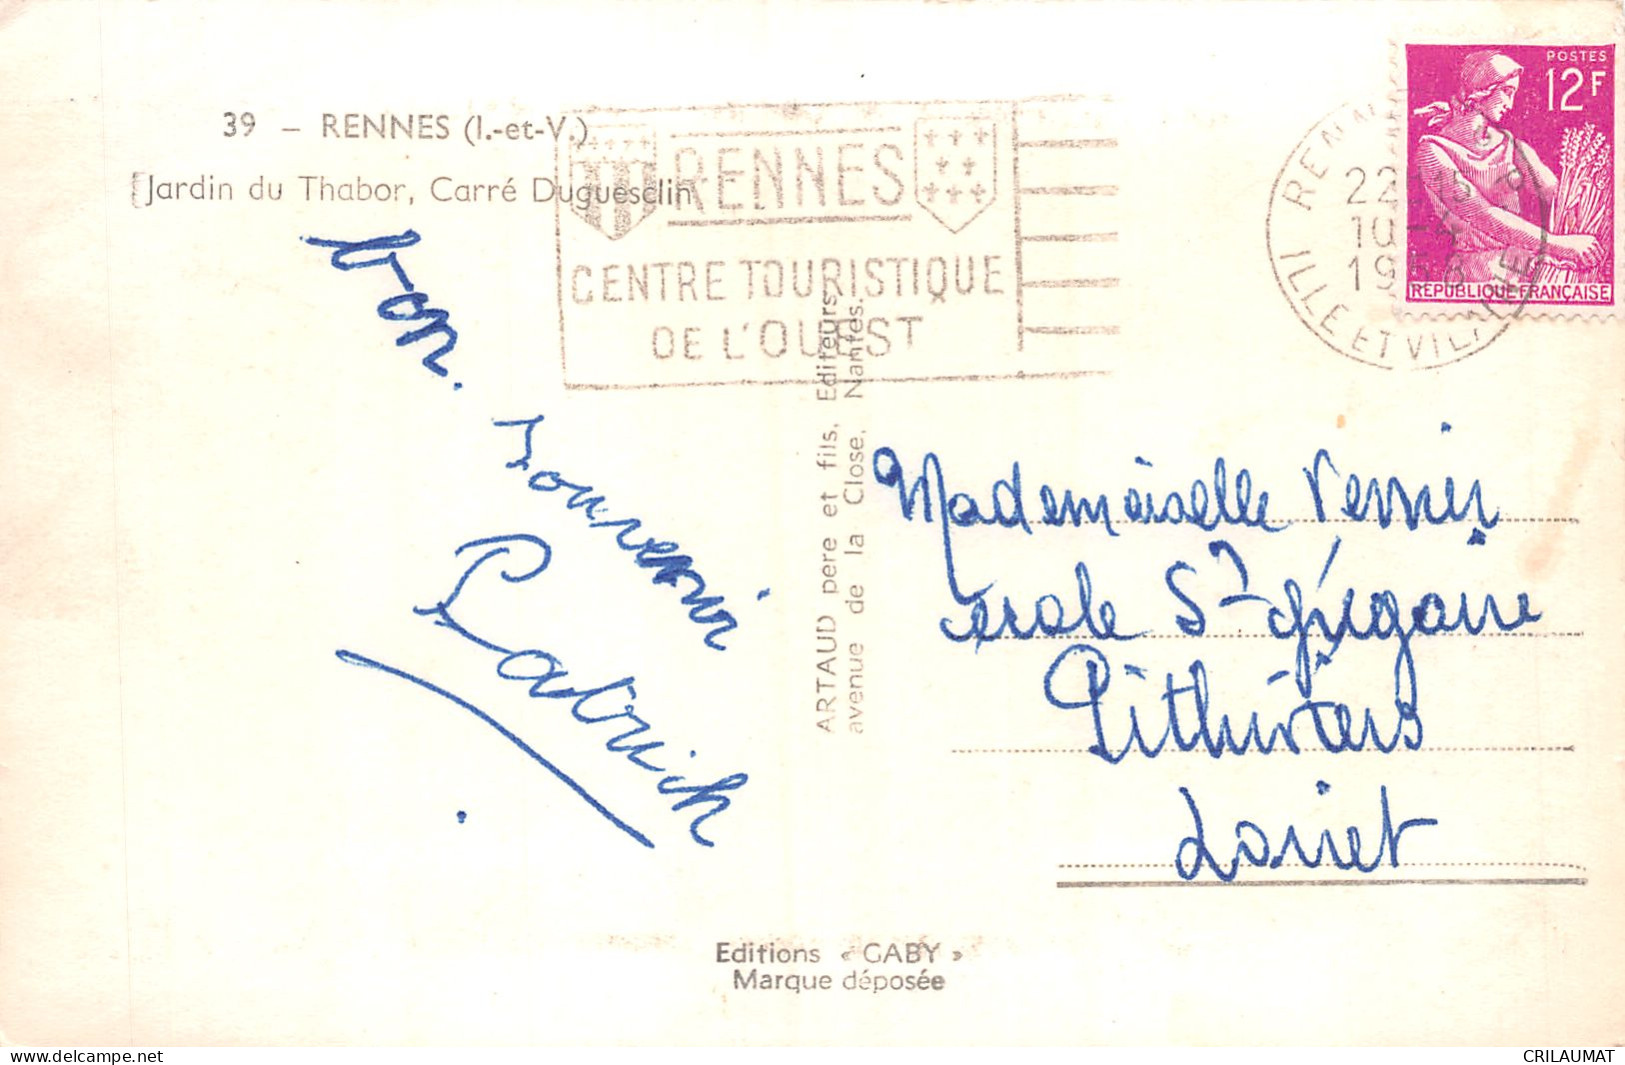 39 - RENNES (I.-et-V.)
Jardin du Thabor, Carré Duguesclin
RENNES
CENTRE TOURISTIQUE
DE L'OUEST
POSTES
12F
REPUBLIQUE FRANÇAISE
10-4
1958
ILLE ET VILAINE
Bon
Souvenir
Patrick
ARTAUD père et fils, Editeurs,
avenue de la Close, Nantes.
Mademoiselle Verrier
école St Grégoire
Pithiviers
Loiret
Editions « GABY »
Marque déposée
delcampe.net
CRILAUMAT